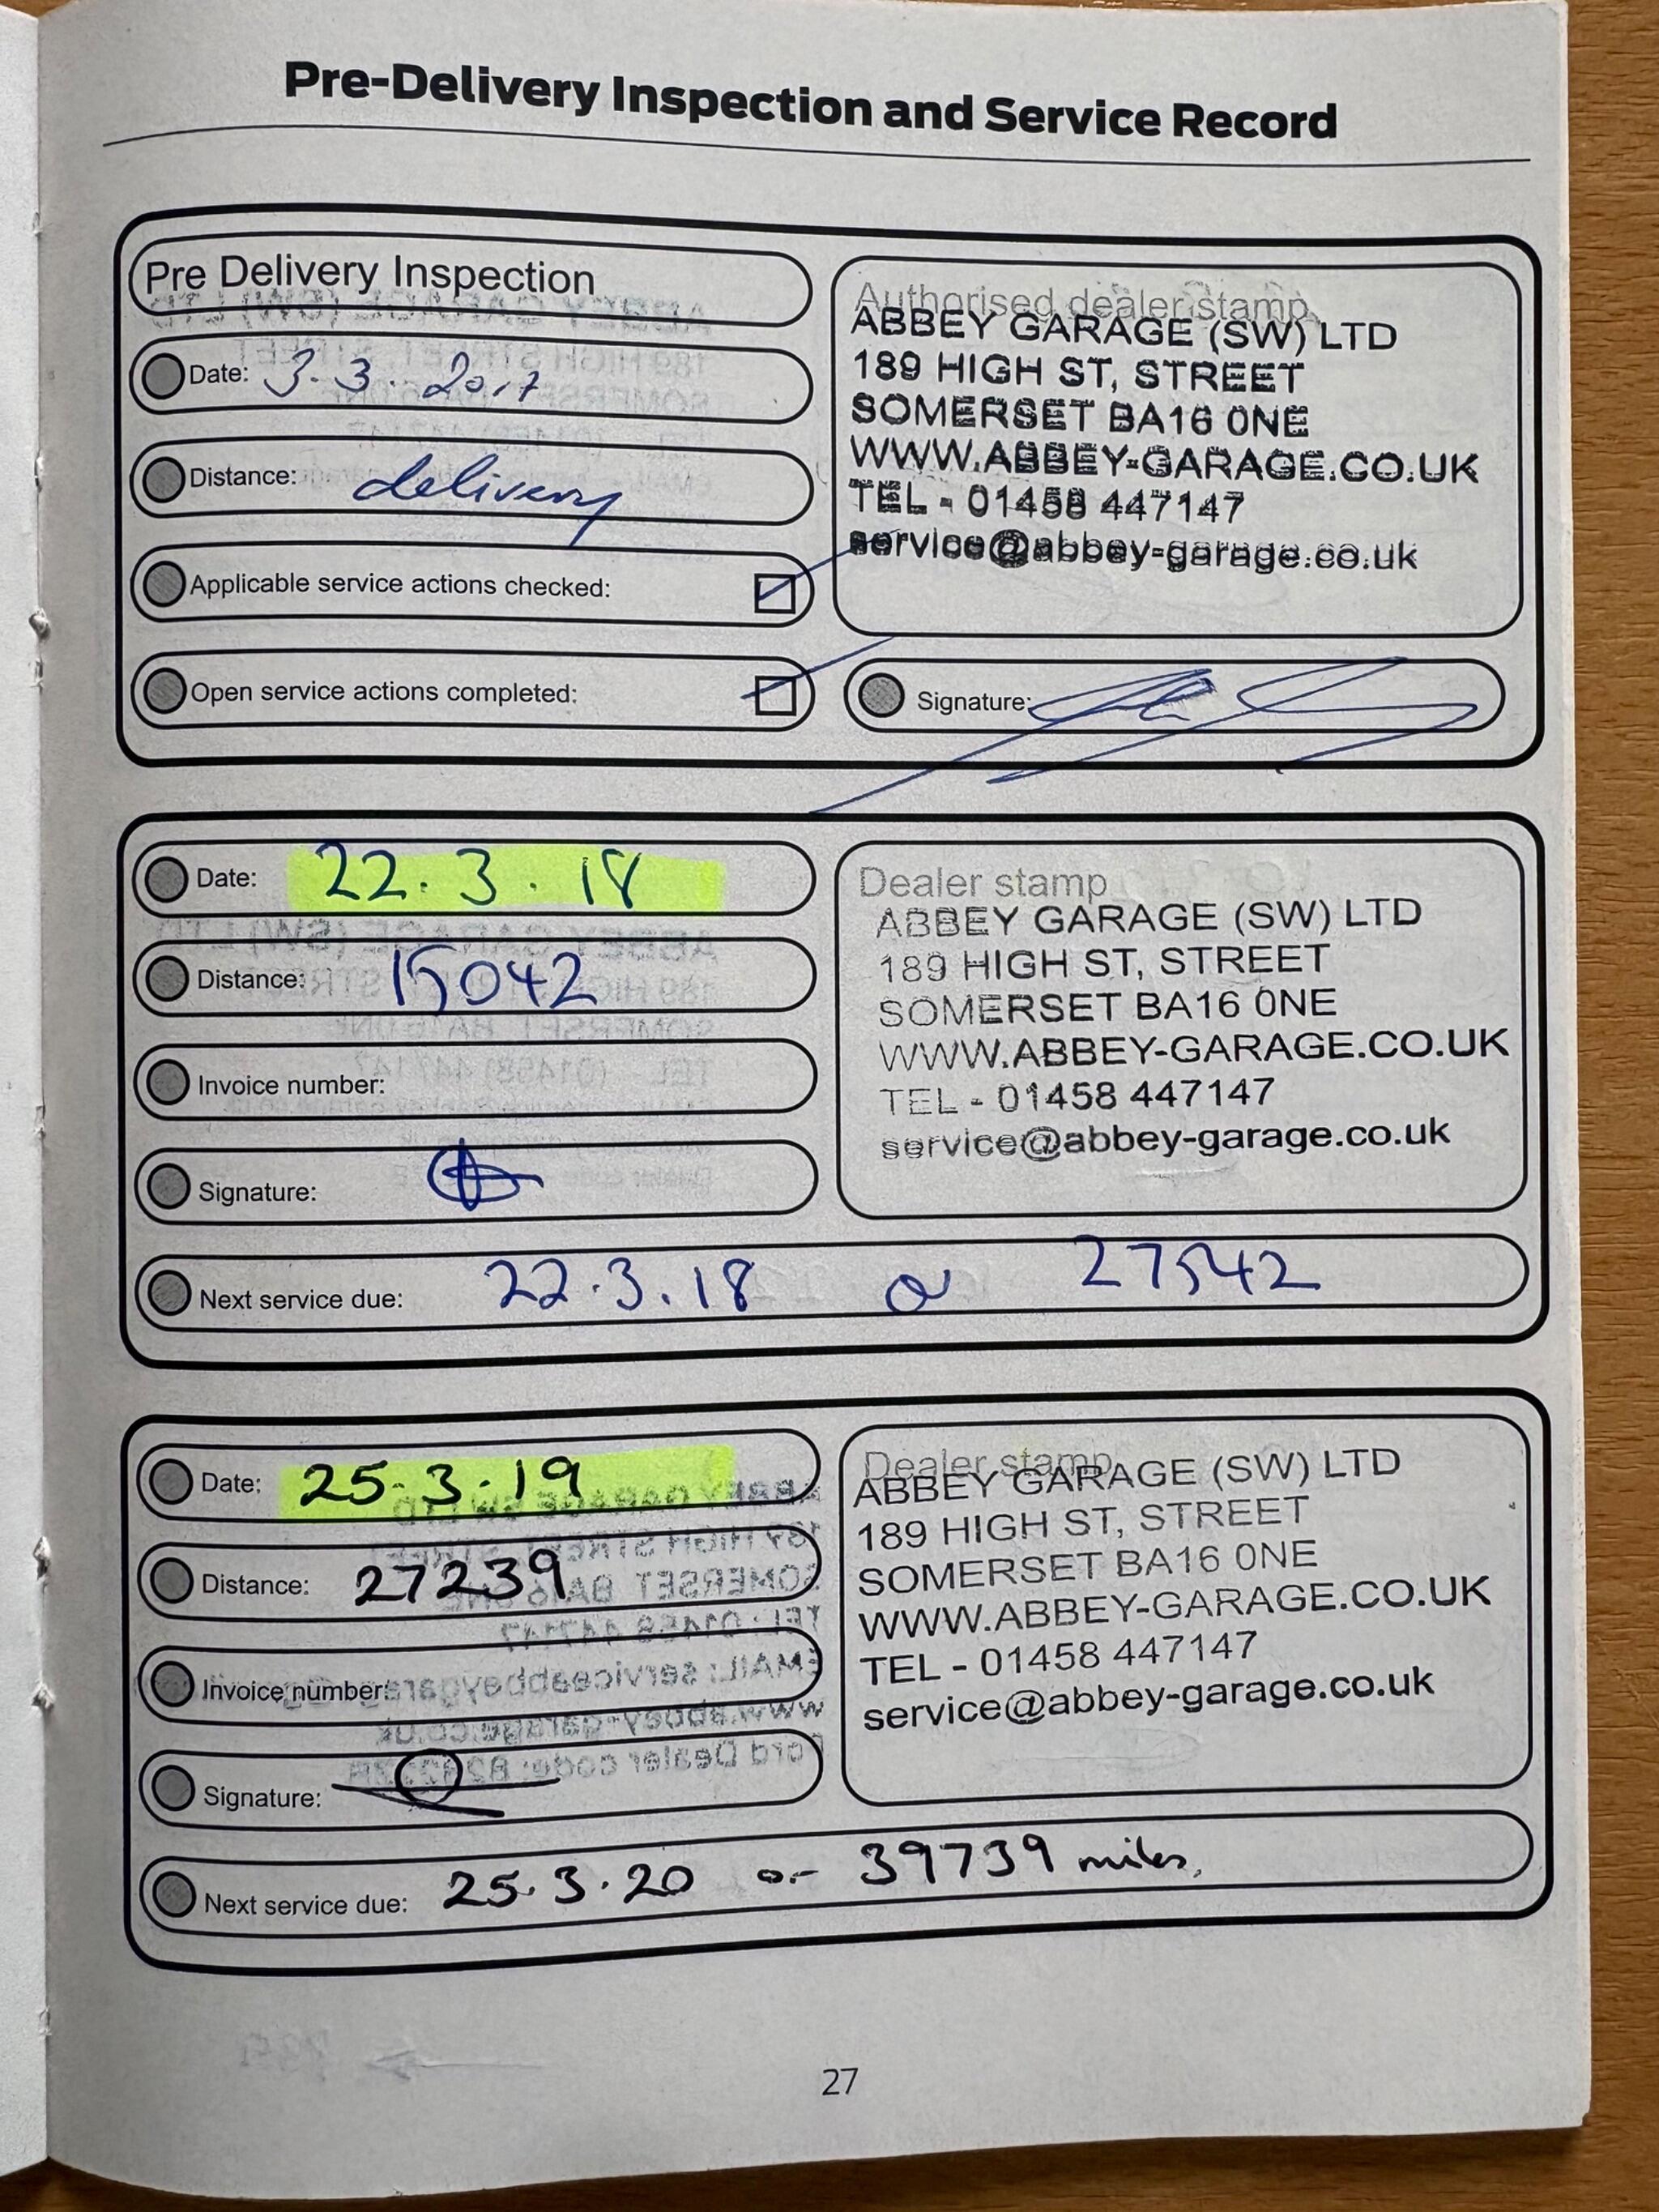 Pre-Delivery Inspection and Service Record
Pre Delivery Inspection
Date: 3.3.2017
Distance: delivery
Applicable service actions checked:
Open service actions completed:
Authorised dealer stamp
ABBEY GARAGE (SW) LTD
189 HIGH ST, STREET
SOMERSET BA16 0NE
WWW.ABBEY-GARAGE.CO.UK
TEL - 01458 447147
service@abbey-garage.co.uk
Signature:
Date: 22.3.18
Distance: 15042
Invoice number:
Signature:
Dealer stamp
ABBEY GARAGE (SW) LTD
189 HIGH ST, STREET
SOMERSET BA16 0NE
WWW.ABBEY-GARAGE.CO.UK
TEL - 01458 447147
service@abbey-garage.co.uk
Next service due: 22.3.18 or 27542
Date: 25.3.19
Distance: 27239
Invoice number:
Signature:
Dealer stamp
ABBEY GARAGE (SW) LTD
189 HIGH ST, STREET
SOMERSET BA16 0NE
WWW.ABBEY-GARAGE.CO.UK
TEL - 01458 447147
service@abbey-garage.co.uk
Next service due: 25.3.20 or 39739 miles.
27